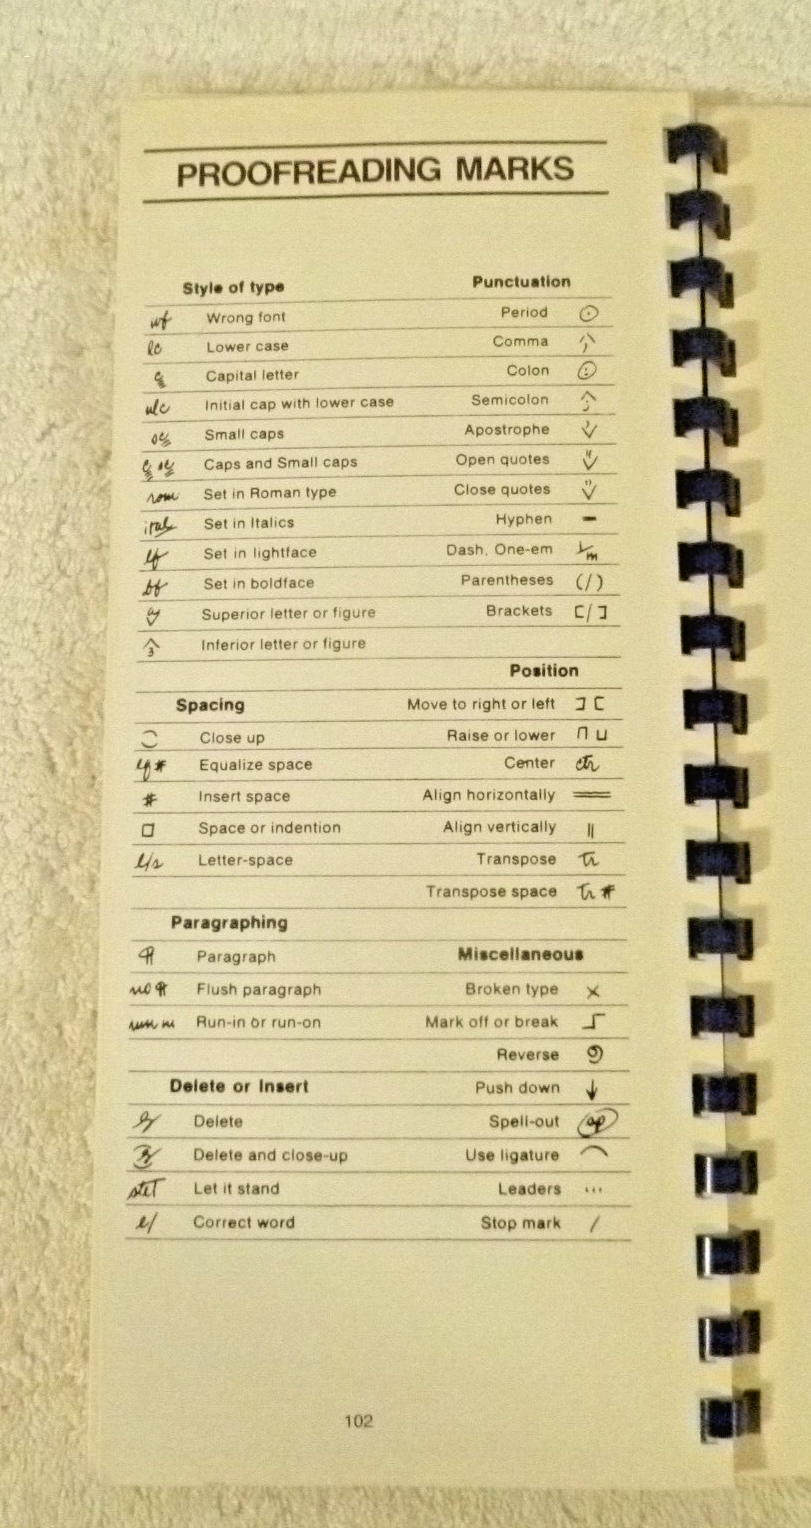 PROOFREADING MARKS
Style of type
wf Wrong font
lc Lower case
Capital letter
ulc Initial cap with lower case
Small caps
Caps and Small caps
rom Set in Roman type
ital Set in Italics
lf Set in lightface
bf Set in boldface
Superior letter or figure
3 Inferior letter or figure
Spacing
Close up
eq # Equalize space
# Insert space
Space or indention
l/s Letter-space
Paragraphing
¶ Paragraph
no ¶ Flush paragraph
run in Run-in or run-on
Delete or Insert
Delete
Delete and close-up
stet Let it stand
e/ Correct word
Punctuation
Period
Comma
Colon
Semicolon
Apostrophe
Open quotes
Close quotes
Hyphen -
Dash, One-em 1/m
Parentheses (/)
Brackets [/]
Position
Move to right or left ] [
Raise or lower
Center ctr
Align horizontally
Align vertically ||
Transpose tr
Transpose space tr #
Miscellaneous
Broken type x
Mark off or break
Reverse 9
Push down ↓
Spell-out sp
Use ligature
Leaders ...
Stop mark /
102